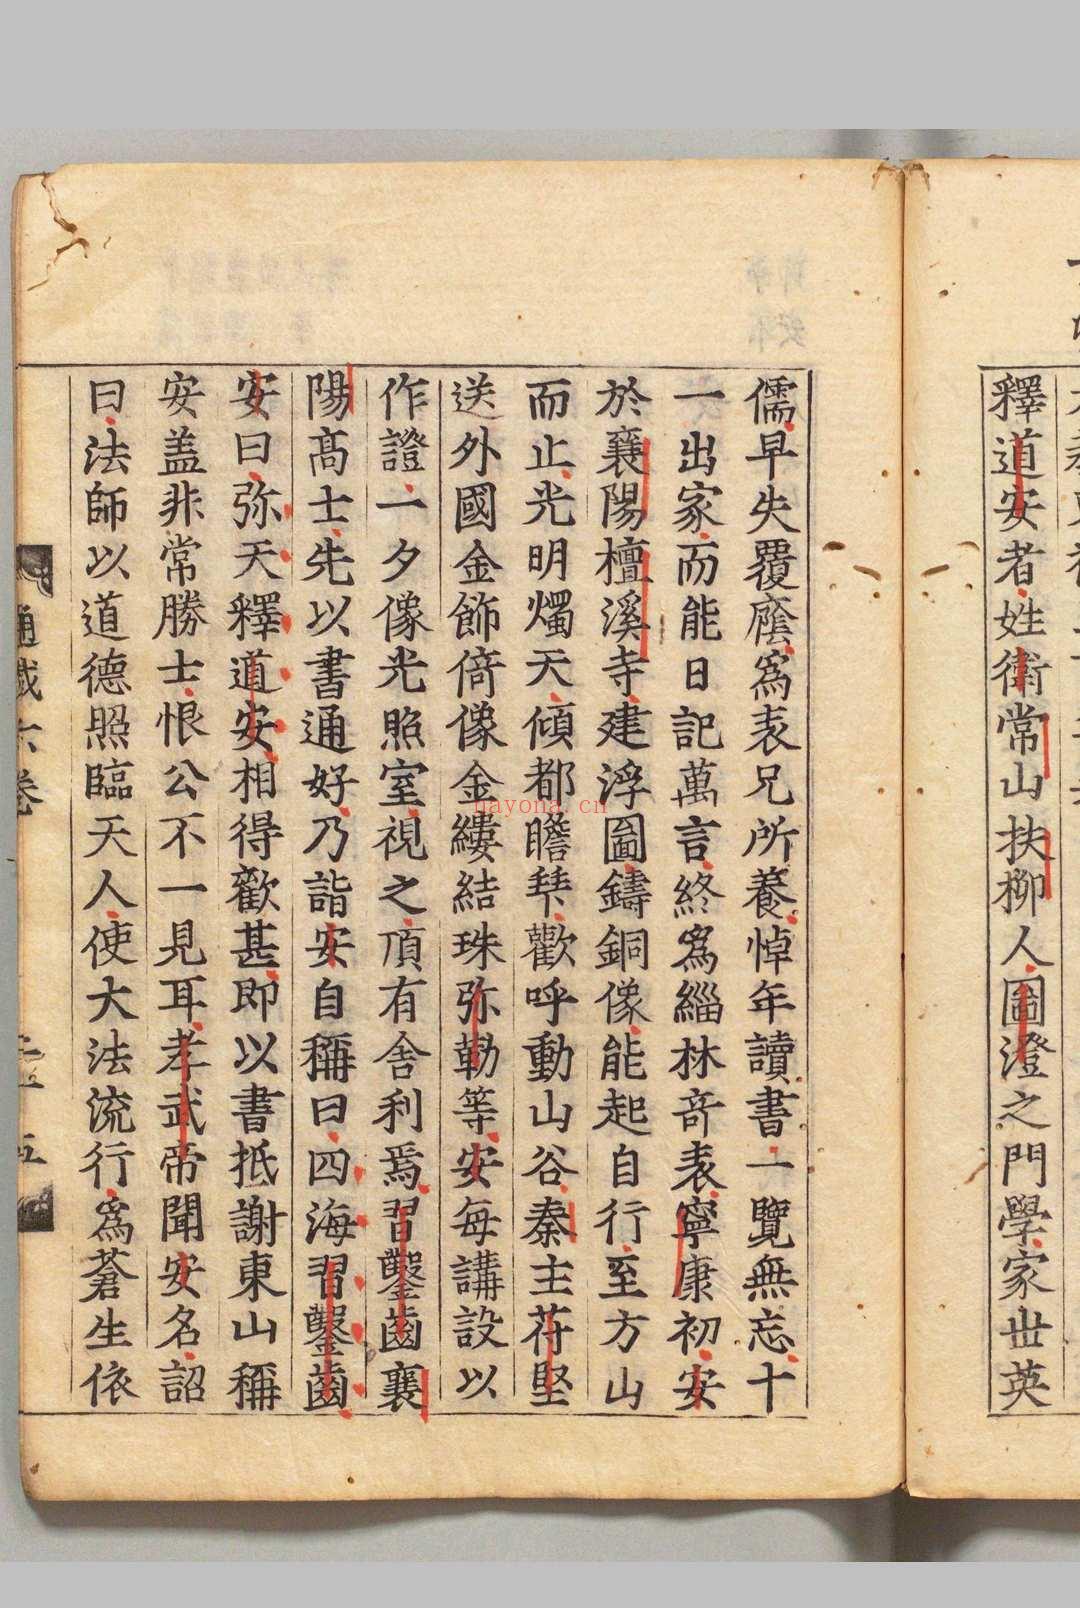 釋道安者姓衛常山扶柳人圖澄之門學家世英
儒早失覆廕爲表兄所養悼年讀書一覽無忘十
一出家而能日記萬言終爲緇林竒表寧康初安
於襄陽檀溪寺建浮圖鑄銅像能起自行至方山
而止光明燭天傾都瞻拜歡呼動山谷秦主苻堅
送外國金飾倚像金縷結珠弥勒等安每講設以
作證一夕像光照室視之頂有舍利焉習鑿齒襄
陽高士先以書通好乃詣安自稱曰四海習鑿齒
安曰弥天釋道安相得歡甚即以書抵謝東山稱
安盖非常勝士恨公不一見耳孝武帝聞安名詔
曰法師以道德照臨天人使大法流行爲蒼生依
通載六卷
nayona.cn